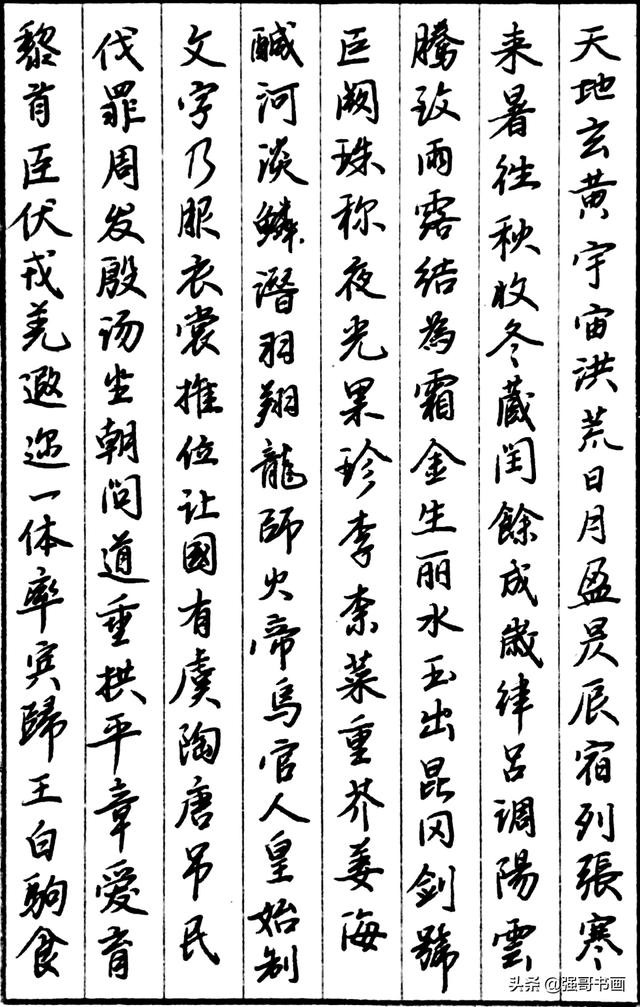 天地玄黄宇宙洪荒日月盈昃辰宿列張寒
来暑往秋收冬藏闰餘成歲律吕调陽雲
騰致雨露结為霜金生丽水玉出昆冈剑號
巨阙珠称夜光果珍李柰菜重芥姜海
鹹河淡鳞潜羽翔龍師火帝鸟官人皇始制
文字乃服衣裳推位让國有虞陶唐吊民
伐罪周发殷汤坐朝问道垂拱平章愛育
黎首臣伏戎羌遐迩一体率宾歸王白驹食
头条 @强哥书画